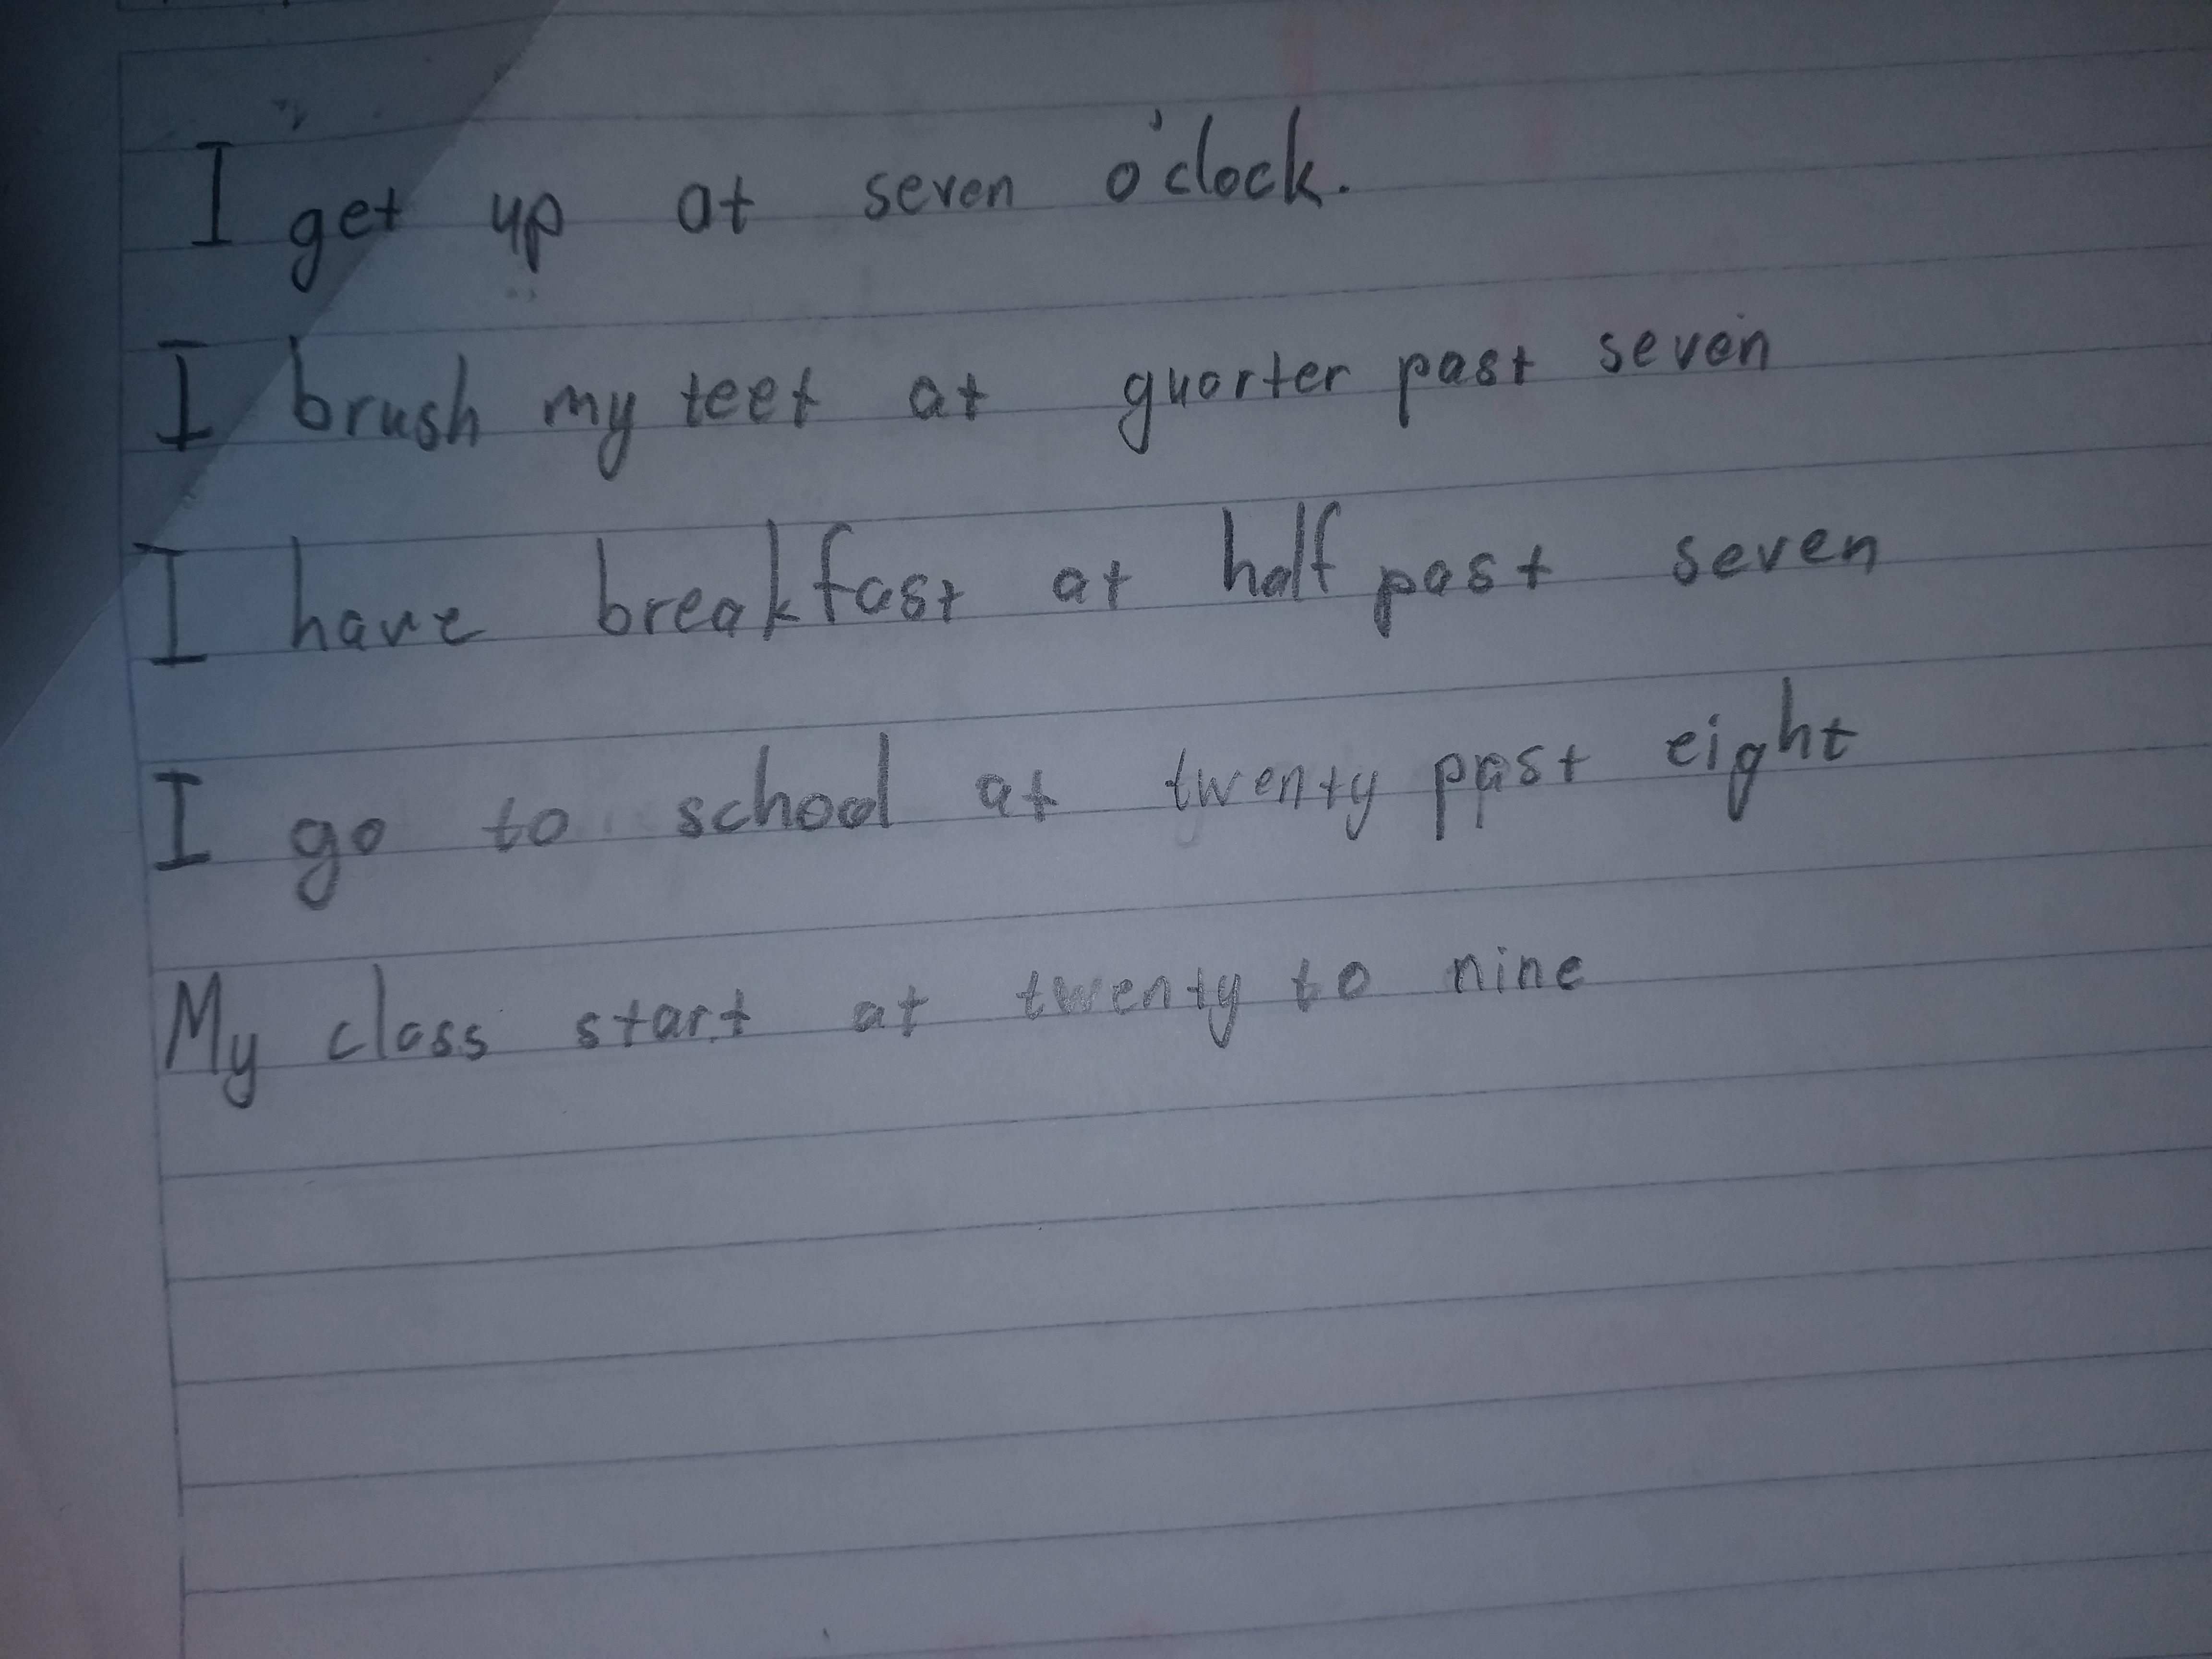 I get up at seven o'clock.
I brush my teet at quorter past seven
I have breakfast at half past seven
I go to school at twenty past eight
My class start at twenty to nine